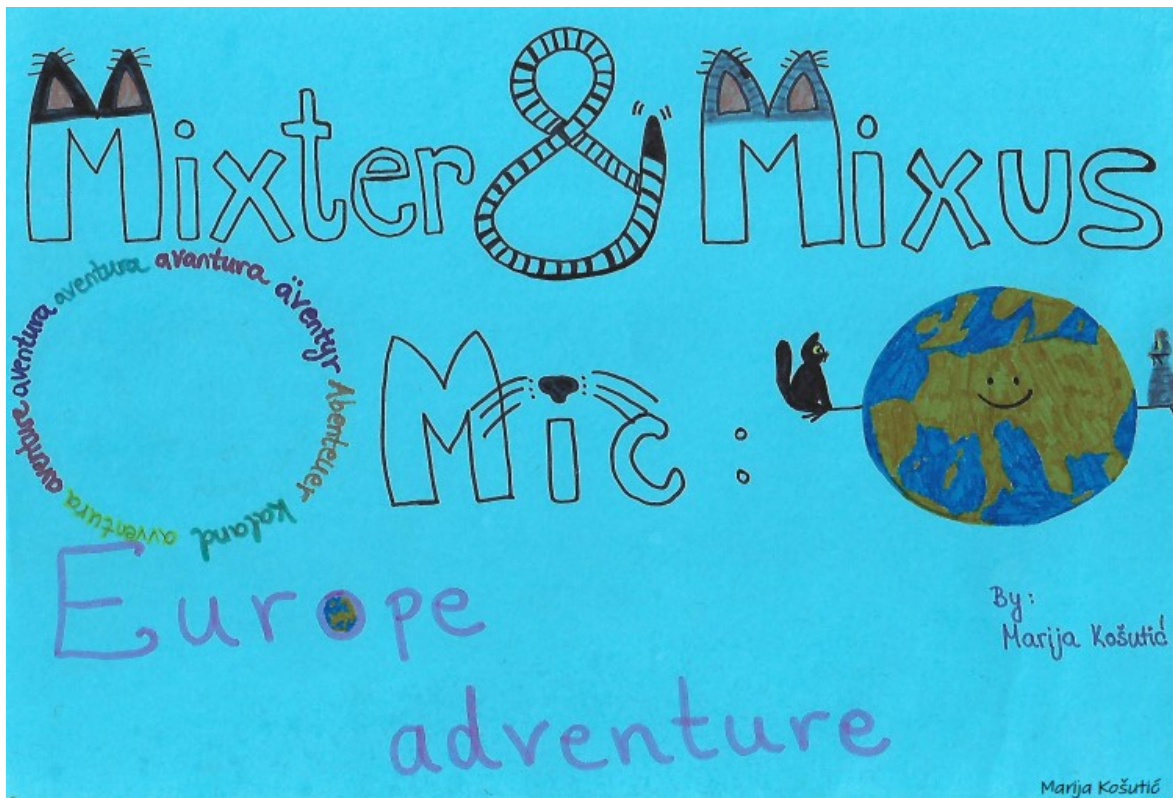 Mixter & Mixus
aventura avantura äventyr Abenteuer kaland avventura aventure aventura
Mic :
Europe
adventure
By:
Marija Košutić
Marija Košutić